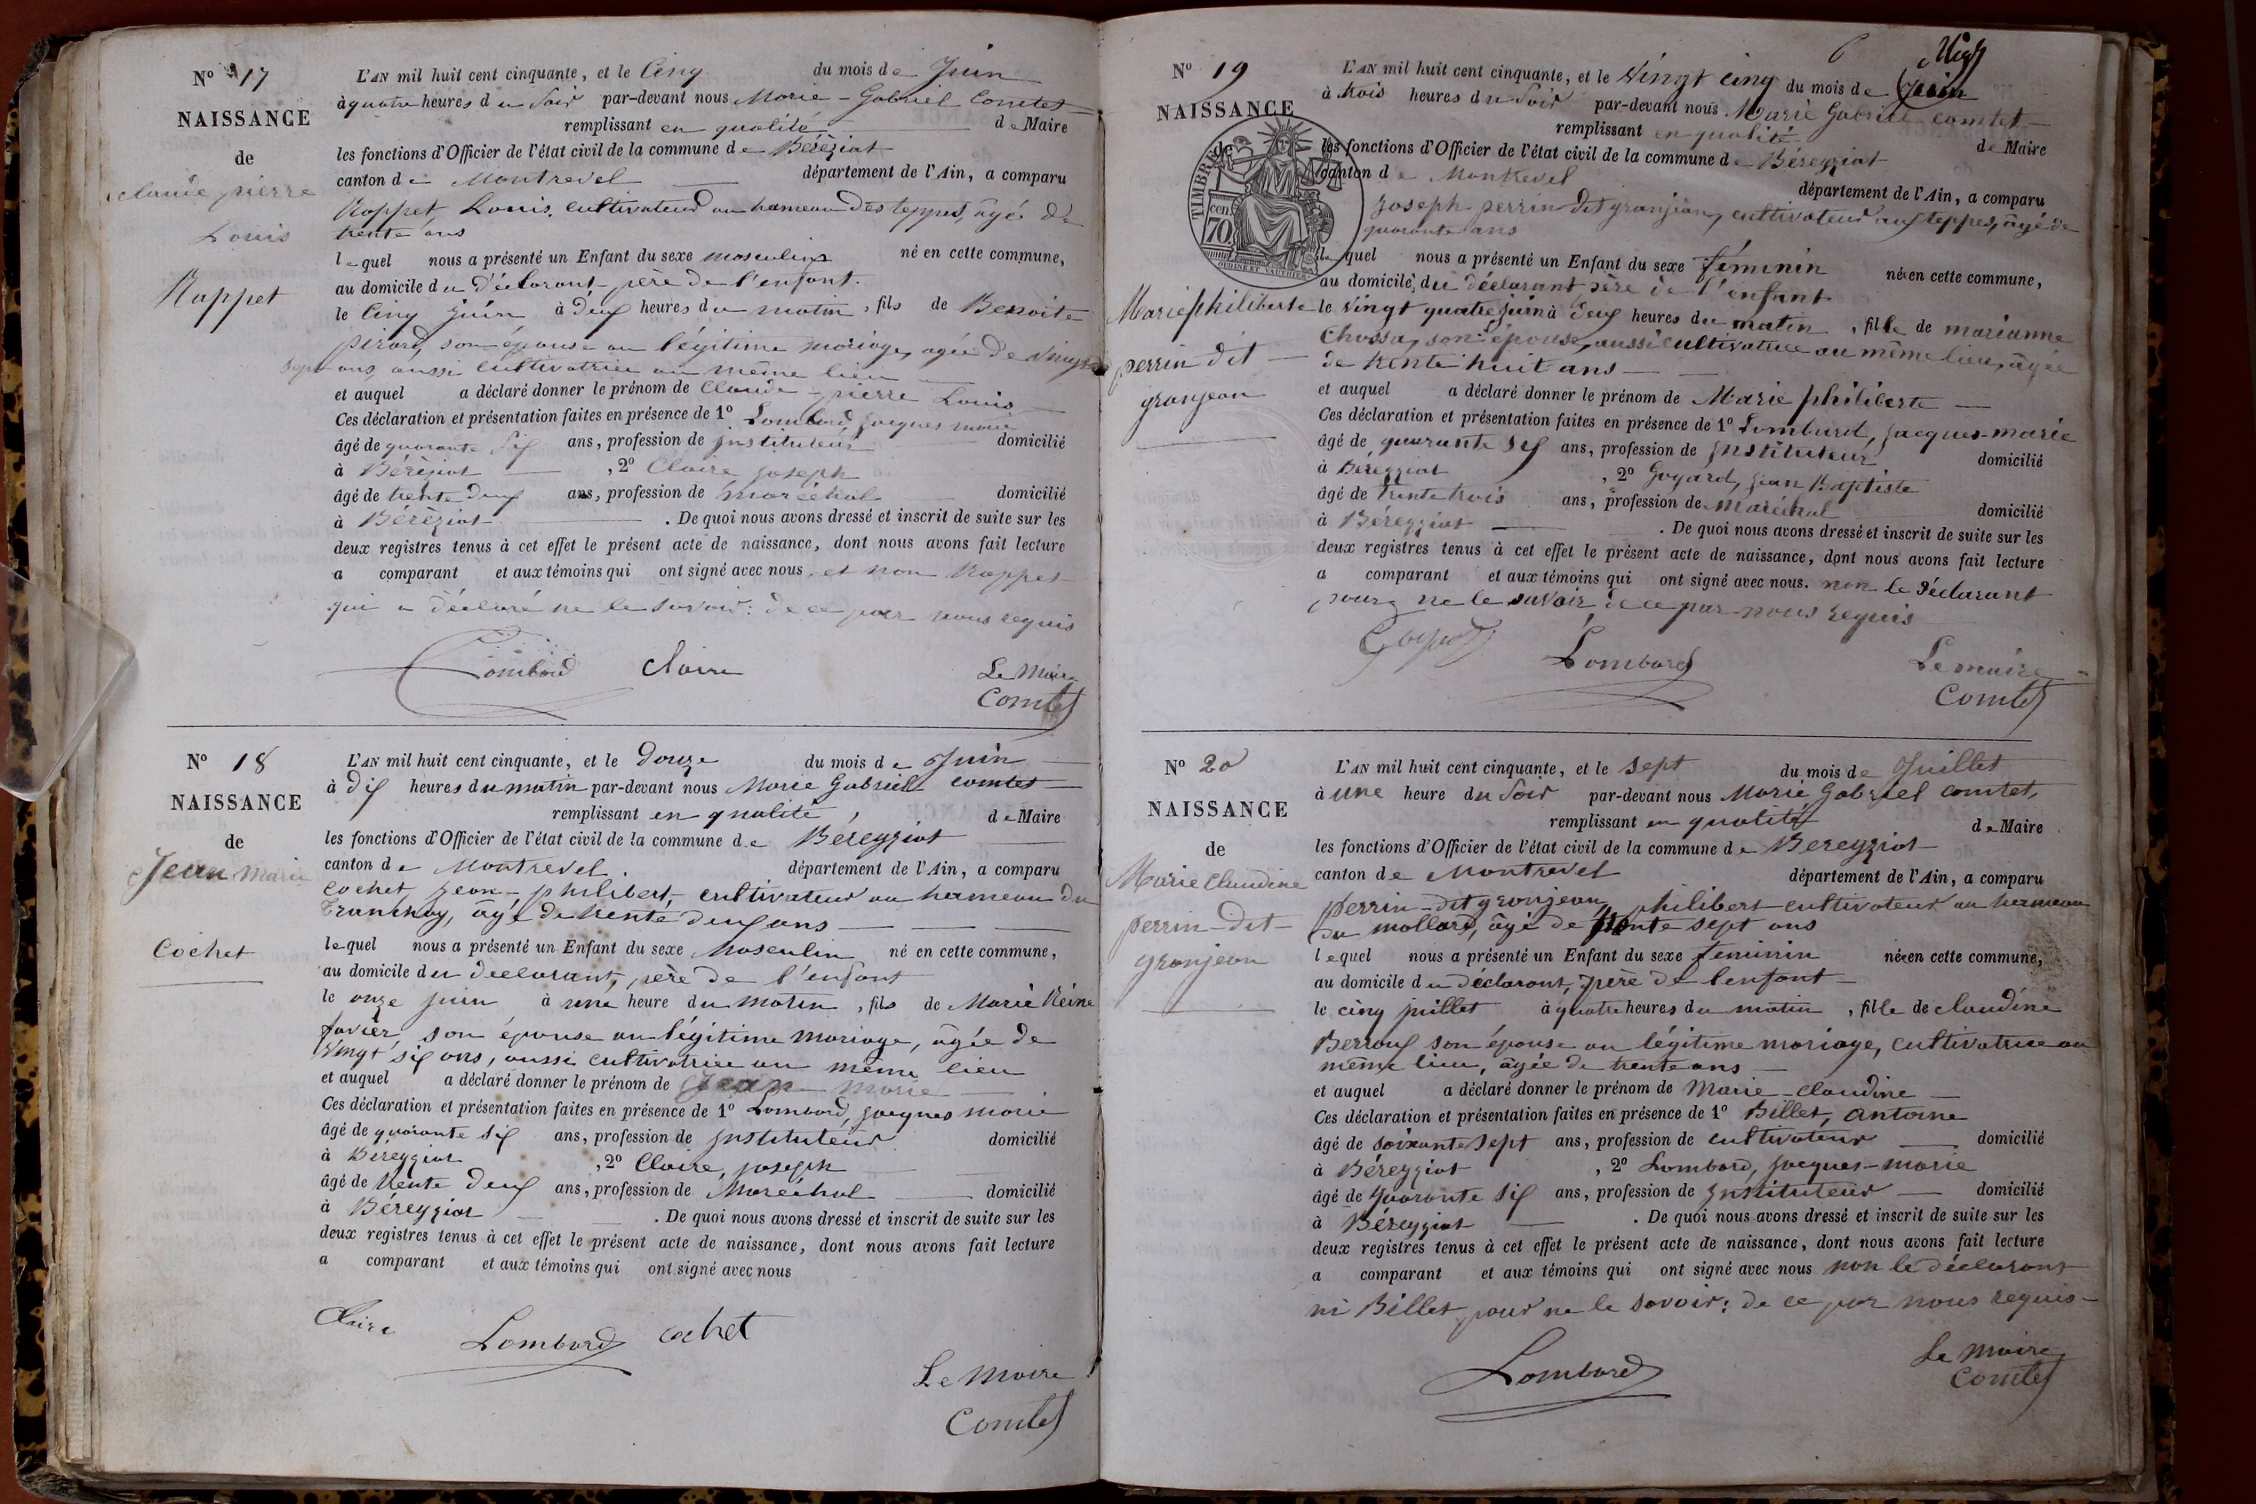 Nº 17
NAISSANCE
de
claude pierre
Louis
Rappet
L'AN mil huit cent cinquante, et le Cinq du mois de Juin
à quatre heures du Soir par-devant nous Marie-Gabriel Comtet
remplissant en qualité de Maire
les fonctions d'Officier de l'état civil de la commune de Béréziat
canton de Montrevel département de l'Ain, a comparu
Rappet Louis, cultivateur au hameau des teppes, âgé de
trente ans
lequel nous a présenté un Enfant du sexe masculin né en cette commune,
au domicile du déclarant père de l'enfant.
le Cinq juin à deux heures du matin, fils de Benoite
pirard, son épouse en légitime mariage, agée de vingt
sept ans, aussi cultivatrice au même lieu
et auquel a déclaré donner le prénom de Claude-pierre Louis
Ces déclaration et présentation faites en présence de 1º Lombard, jacques marie
âgé de quarante Six ans, profession de instituteur domicilié
à Béréziat, 2º Claire joseph
âgé de trente deux ans, profession de maréchal domicilié
à Béréziat. De quoi nous avons dressé et inscrit de suite sur les
deux registres tenus à cet effet le présent acte de naissance, dont nous avons fait lecture
a comparant et aux témoins qui ont signé avec nous, et non Rappet
qui a déclaré ne le savoir: de ce par nous requis
Lombard Claire Le Maire
Comtet
Nº 18
NAISSANCE
de
Jean marie
Cochet
L'AN mil huit cent cinquante, et le douze du mois de Juin
à dix heures du matin par-devant nous Marie Gabriel comtet
remplissant en qualité, de Maire
les fonctions d'Officier de l'état civil de la commune de Béreyziat
canton de Montrevel département de l'Ain, a comparu
Cochet jean-philibert, cultivateur au hameau du
Tranchay, âgé de trente deux ans
lequel nous a présenté un Enfant du sexe Masculin né en cette commune,
au domicile du declarant, père de l'enfant
le onze juin à une heure du matin, fils de Marie Reine
favier, son épouse en légitime mariage, âgée de
Vingt six ans, aussi cultivatrice au même lieu
et auquel a déclaré donner le prénom de Jean marie
Ces déclaration et présentation faites en présence de 1º Lombard, jacques marie
âgé de quarante six ans, profession de instituteur domicilié
à Béreyziat, 2º Claire, joseph
âgé de trente deux ans, profession de Maréchal domicilié
à Béreyziat. De quoi nous avons dressé et inscrit de suite sur les
deux registres tenus à cet effet le présent acte de naissance, dont nous avons fait lecture
a comparant et aux témoins qui ont signé avec nous
Claire Lombard Cochet
Le Maire
Comtet
6
Nº 19
NAISSANCE
TIMBRE
70 cen
Marie philiberte
perrin dit
granjean
L'AN mil huit cent cinquante, et le Vingt cinq du mois de Juin
à trois heures du Soir par-devant nous Marie Gabriel comtet
remplissant en qualité de Maire
les fonctions d'Officier de l'état civil de la commune de Béreyziat
canton de Montrevel département de l'Ain, a comparu
joseph perrin dit granjean, cultivateur aux teppes, âgé de
quarante ans
lequel nous a présenté un Enfant du sexe féminin née en cette commune,
au domicile, du déclarant père de l'enfant
le vingt quatre juin à deux heures du matin, fille de marianne
Chossa, son épouse, aussi cultivatrice au même lieu, âgée
de trente huit ans
et auquel a déclaré donner le prénom de Marie philiberte
Ces déclaration et présentation faites en présence de 1º Lombard, jacques-marie
âgé de quarante six ans, profession de instituteur domicilié
à Béreyziat, 2º Goyard, jean Baptiste
âgé de trente trois ans, profession de Maréchal domicilié
à Béreyziat. De quoi nous avons dressé et inscrit de suite sur les
deux registres tenus à cet effet le présent acte de naissance, dont nous avons fait lecture
a comparant et aux témoins qui ont signé avec nous. non le déclarant
pour ne le savoir de ce par nous requis
Goyard Lombard Le maire
Comtet
Nº 20
NAISSANCE
de
Marie Claudine
perrin-dit
granjean
L'AN mil huit cent cinquante, et le sept du mois de Juillet
à une heure du Soir par-devant nous Marie Gabriel comtet,
remplissant en qualité de Maire
les fonctions d'Officier de l'état civil de la commune de Bereyziat
canton de Montrevel département de l'Ain, a comparu
perrin-dit granjean, philibert cultivateur au hameau
du mollard, âgé de trente sept ans
lequel nous a présenté un Enfant du sexe feminin née en cette commune,
au domicile du déclarant, père de l'enfant
le cinq juillet à quatre heures du matin, fille de claudine
Berroux son épouse en légitime mariage, cultivatrice au
même lieu, âgée de trente ans
et auquel a déclaré donner le prénom de Marie-claudine
Ces déclaration et présentation faites en présence de 1º Billet, antoine
âgé de soixante sept ans, profession de cultivateur domicilié
à Béreyziat, 2º Lombard, jacques-marie
âgé de quarante six ans, profession de instituteur domicilié
à Béreyziat. De quoi nous avons dressé et inscrit de suite sur les
deux registres tenus à cet effet le présent acte de naissance, dont nous avons fait lecture
a comparant et aux témoins qui ont signé avec nous non le déclarant
ni Billet pour ne le savoir: de ce par nous requis
Lombard Le Maire
Comtet